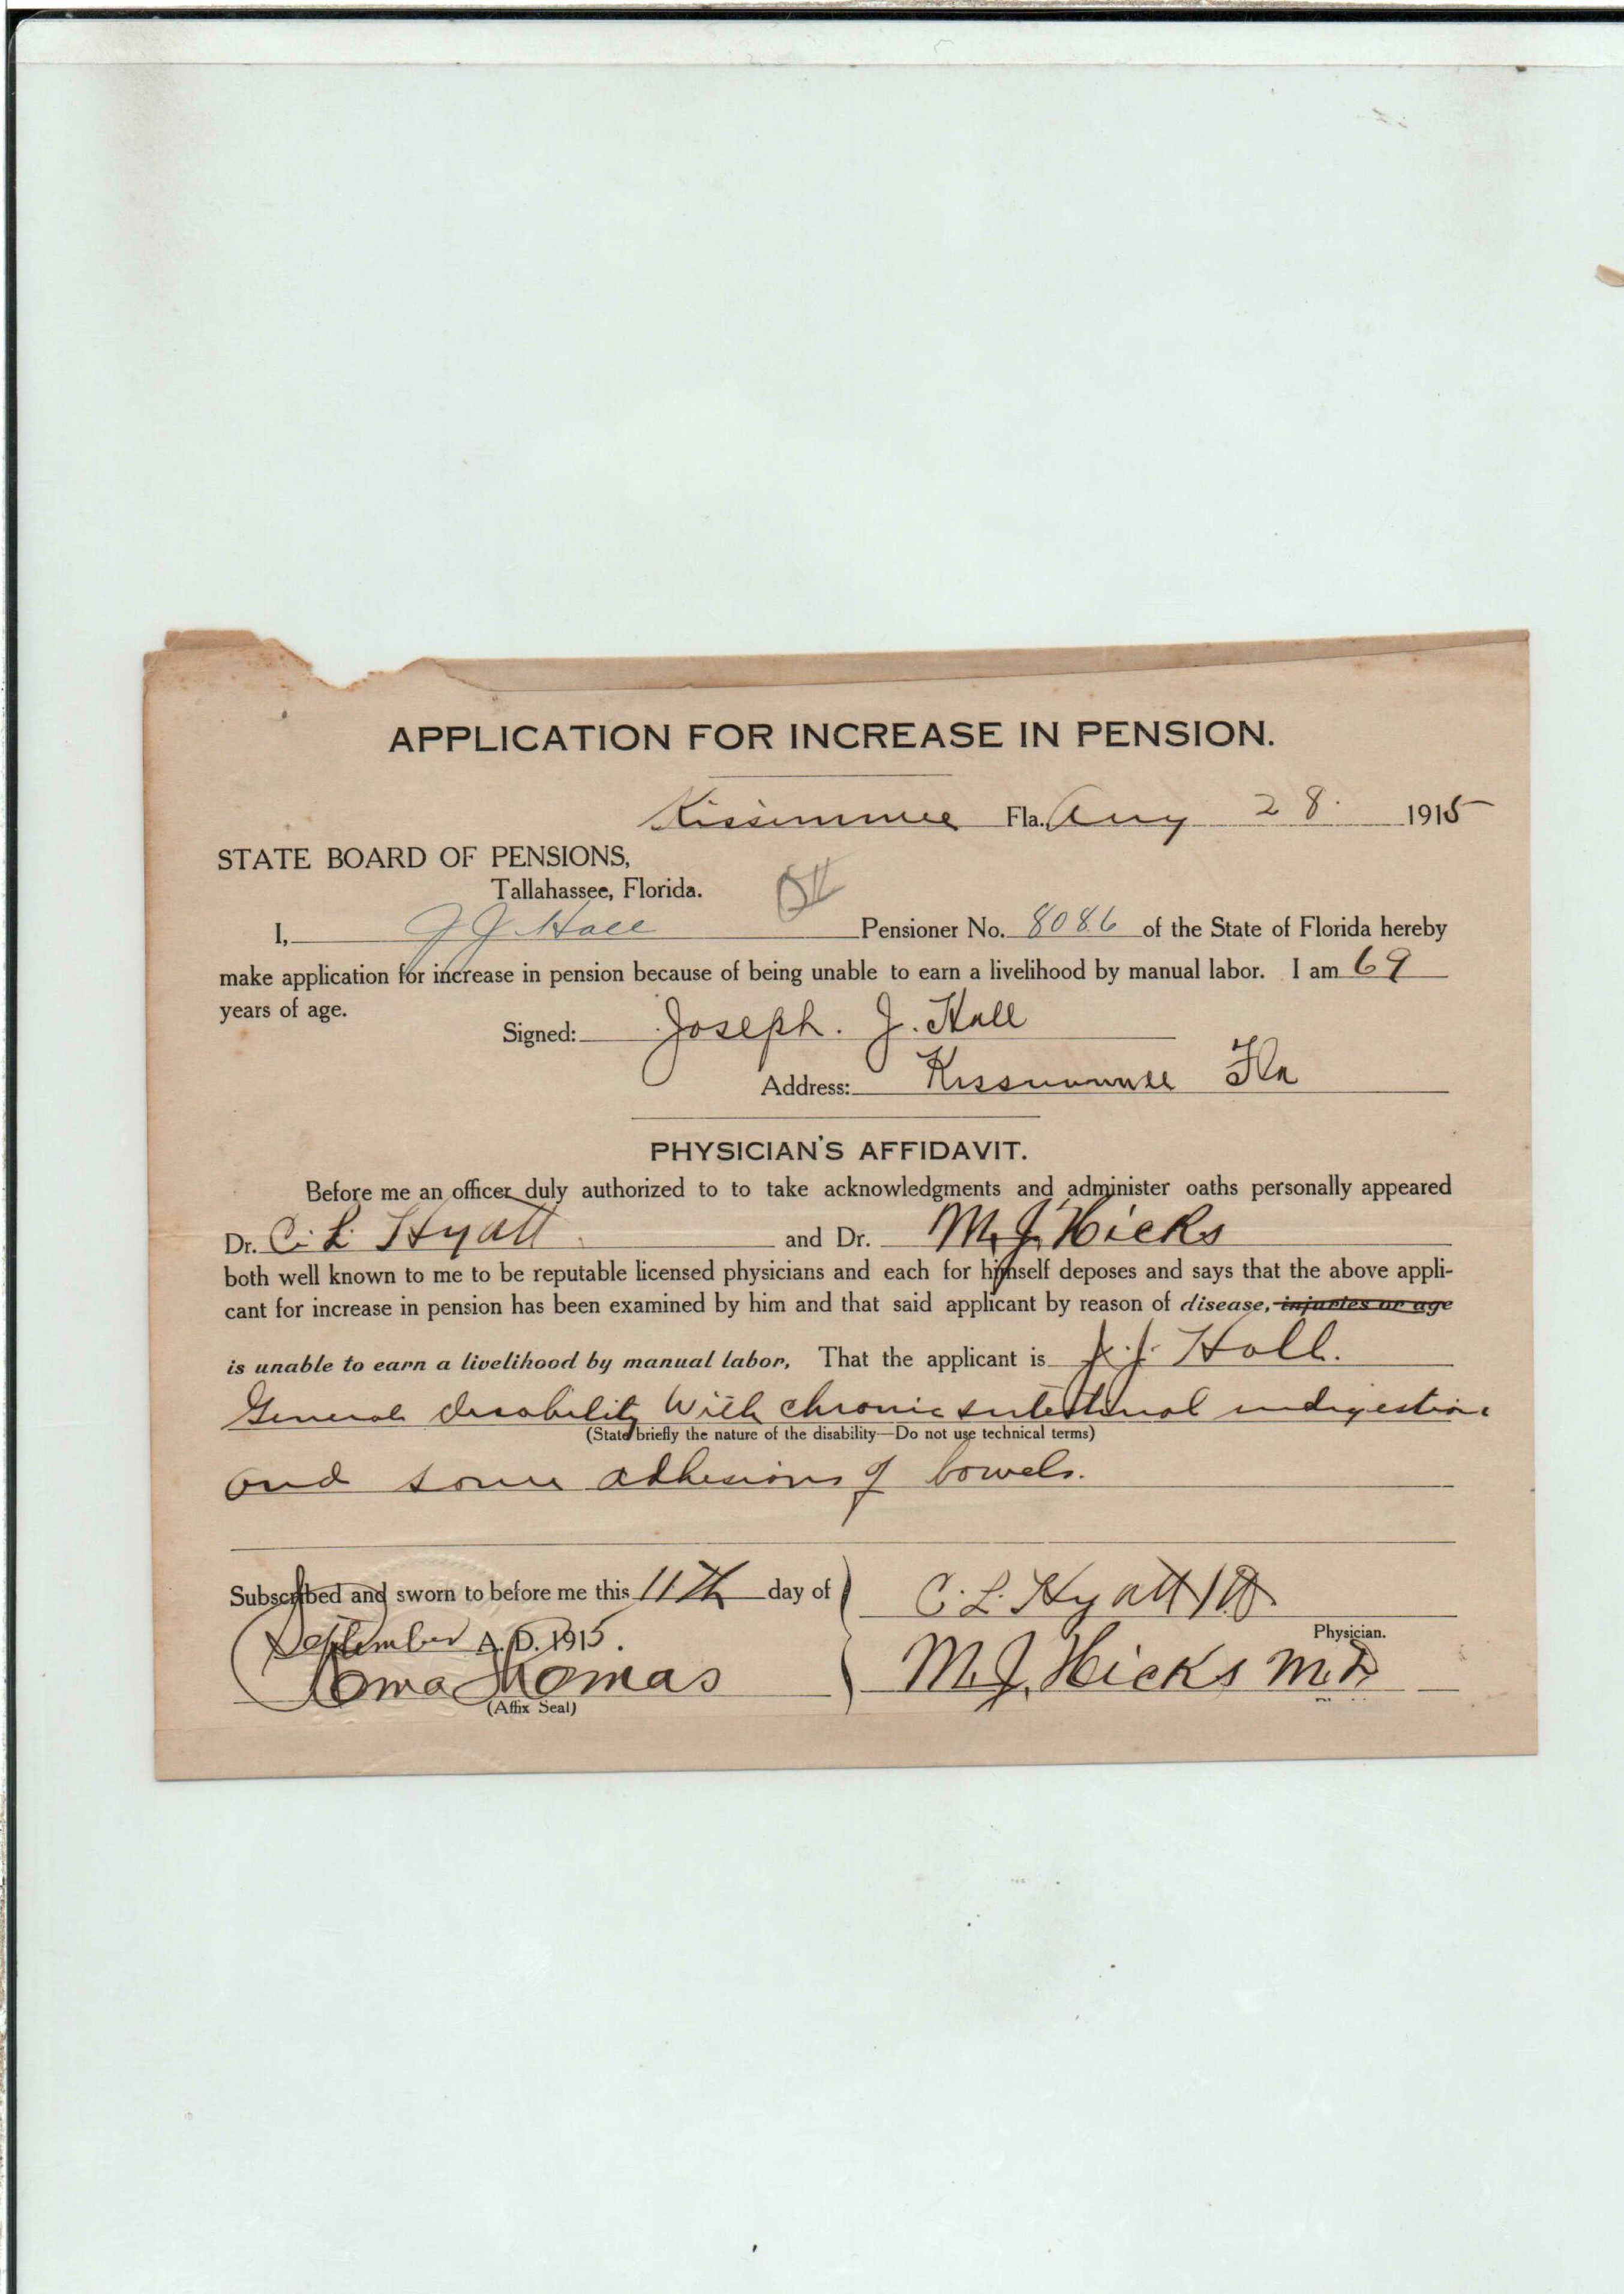 APPLICATION FOR INCREASE IN PENSION.
Kissimmee Fla. Aug 28. 1915
STATE BOARD OF PENSIONS,
Tallahassee, Florida.
OK
I, J J Hall Pensioner No. 8086 of the State of Florida hereby
make application for increase in pension because of being unable to earn a livelihood by manual labor. I am 69
years of age.
Signed: Joseph. J. Hall
Address: Kissimmee Fla
PHYSICIAN'S AFFIDAVIT.
Before me an officer duly authorized to to take acknowledgments and administer oaths personally appeared
Dr. C. L. Hyatt and Dr. M. J. Hicks
both well known to me to be reputable licensed physicians and each for himself deposes and says that the above appli-
cant for increase in pension has been examined by him and that said applicant by reason of disease, injuries or age
is unable to earn a livelihood by manual labor, That the applicant is J. J. Hall.
General disability with chronic intestinal indigestion
(State briefly the nature of the disability—Do not use technical terms)
and some adhesions of bowels.
Subscribed and sworn to before me this 11th day of
September A. D. 1915.
Thomas
(Affix Seal)
C. L. Hyatt MD
Physician.
M. J. Hicks M.D